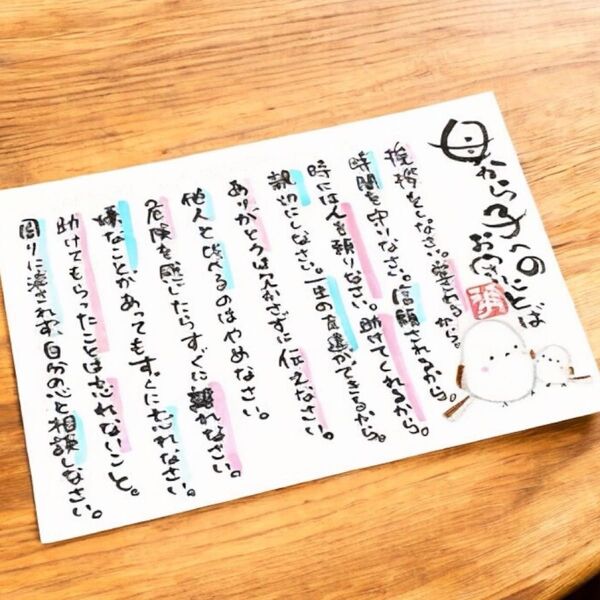 母から子への
お守りことば
挨拶をしなさい。愛されるから。
時間を守りなさい。信頼されるから。
時には人を頼りなさい。助けてくれるから。
親切にしなさい。一生の友達ができるから。
ありがとうは欠かさずに伝えなさい。
他人と比べるのはやめなさい。
危険を感じたらすぐに離れなさい。
嫌なことがあってもすぐに忘れなさい。
助けてもらったことは忘れないこと。
周りに流されず、自分の心と相談しなさい。